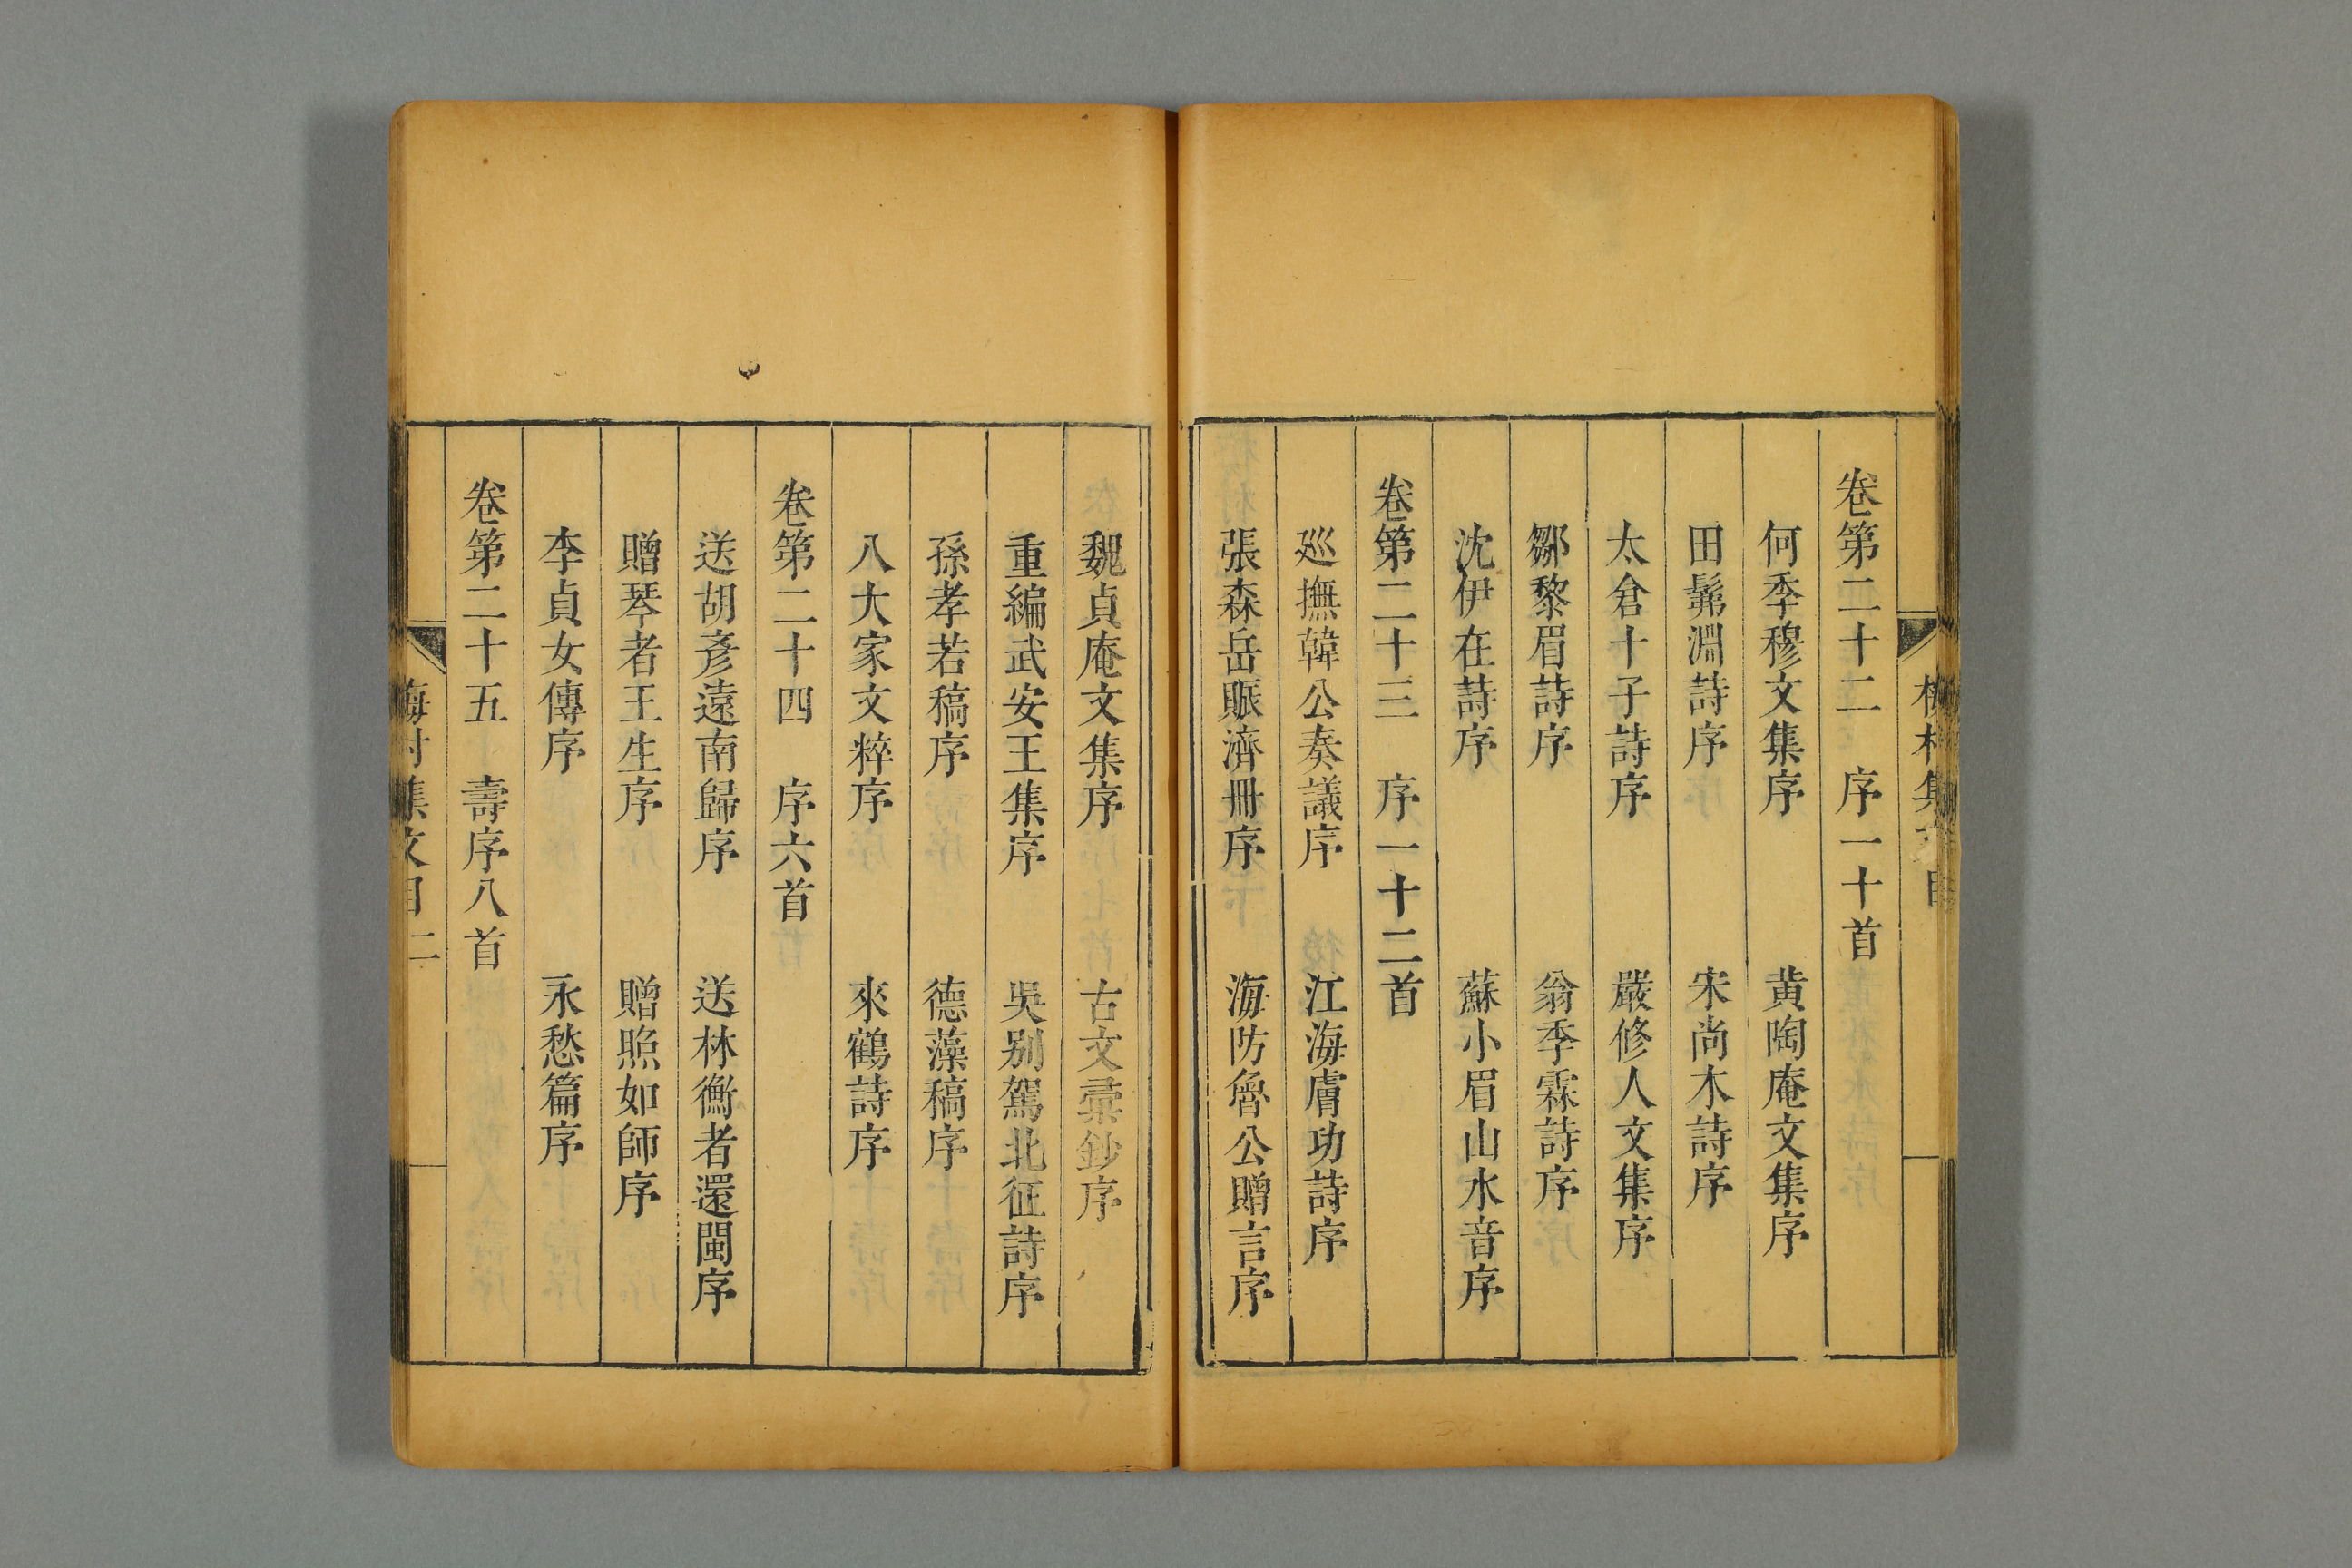 卷第二十二　序一十首
何季穆文集序　黄陶庵文集序
田髴淵詩序　宋尚木詩序
太倉十子詩序　嚴修人文集序
鄒黎眉詩序　翁季霖詩序
沈伊在詩序　蘇小眉山水音序
卷第二十三　序一十二首
廵撫韓公奏議序　江海膚功詩序
張森岳賑濟冊序　海防魯公贈言序
魏貞庵文集序　古文彚鈔序
重編武安王集序　吳别駕北征詩序
孫孝若稿序　德藻稿序
八大家文粹序　來鶴詩序
卷第二十四　序六首
送胡彥遠南歸序　送林衡者還閩序
贈琴者王生序　贈照如師序
李貞女傳序　永愁篇序
卷第二十五　壽序八首
梅村集文目　二